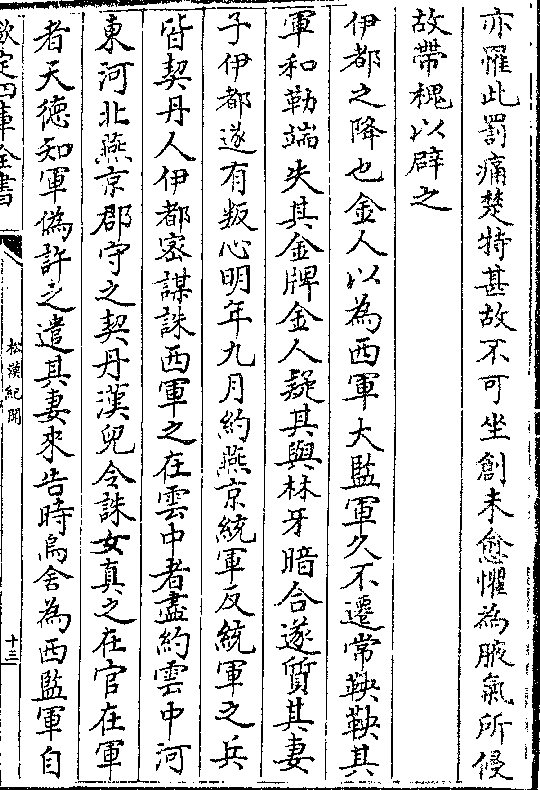 亦罹此罰痛楚特甚故不可坐創未愈懼為腋氣所侵
故帶槐以辟之
伊都之降也金人以為西軍大監軍久不遷常鞅鞅其
軍和勒端失其金牌金人疑其與林牙暗合遂質其妻
子伊都遂有叛心明年九月約燕京統軍反統軍之兵
皆契丹人伊都密謀誅西軍之在雲中者盡約雲中河
東河北燕京郡守之契丹漢兒令誅女真之在官在軍
者天德知軍偽許之遣其妻來告時烏舍為西監軍自
欽定四庫全書
松漠紀聞
十三